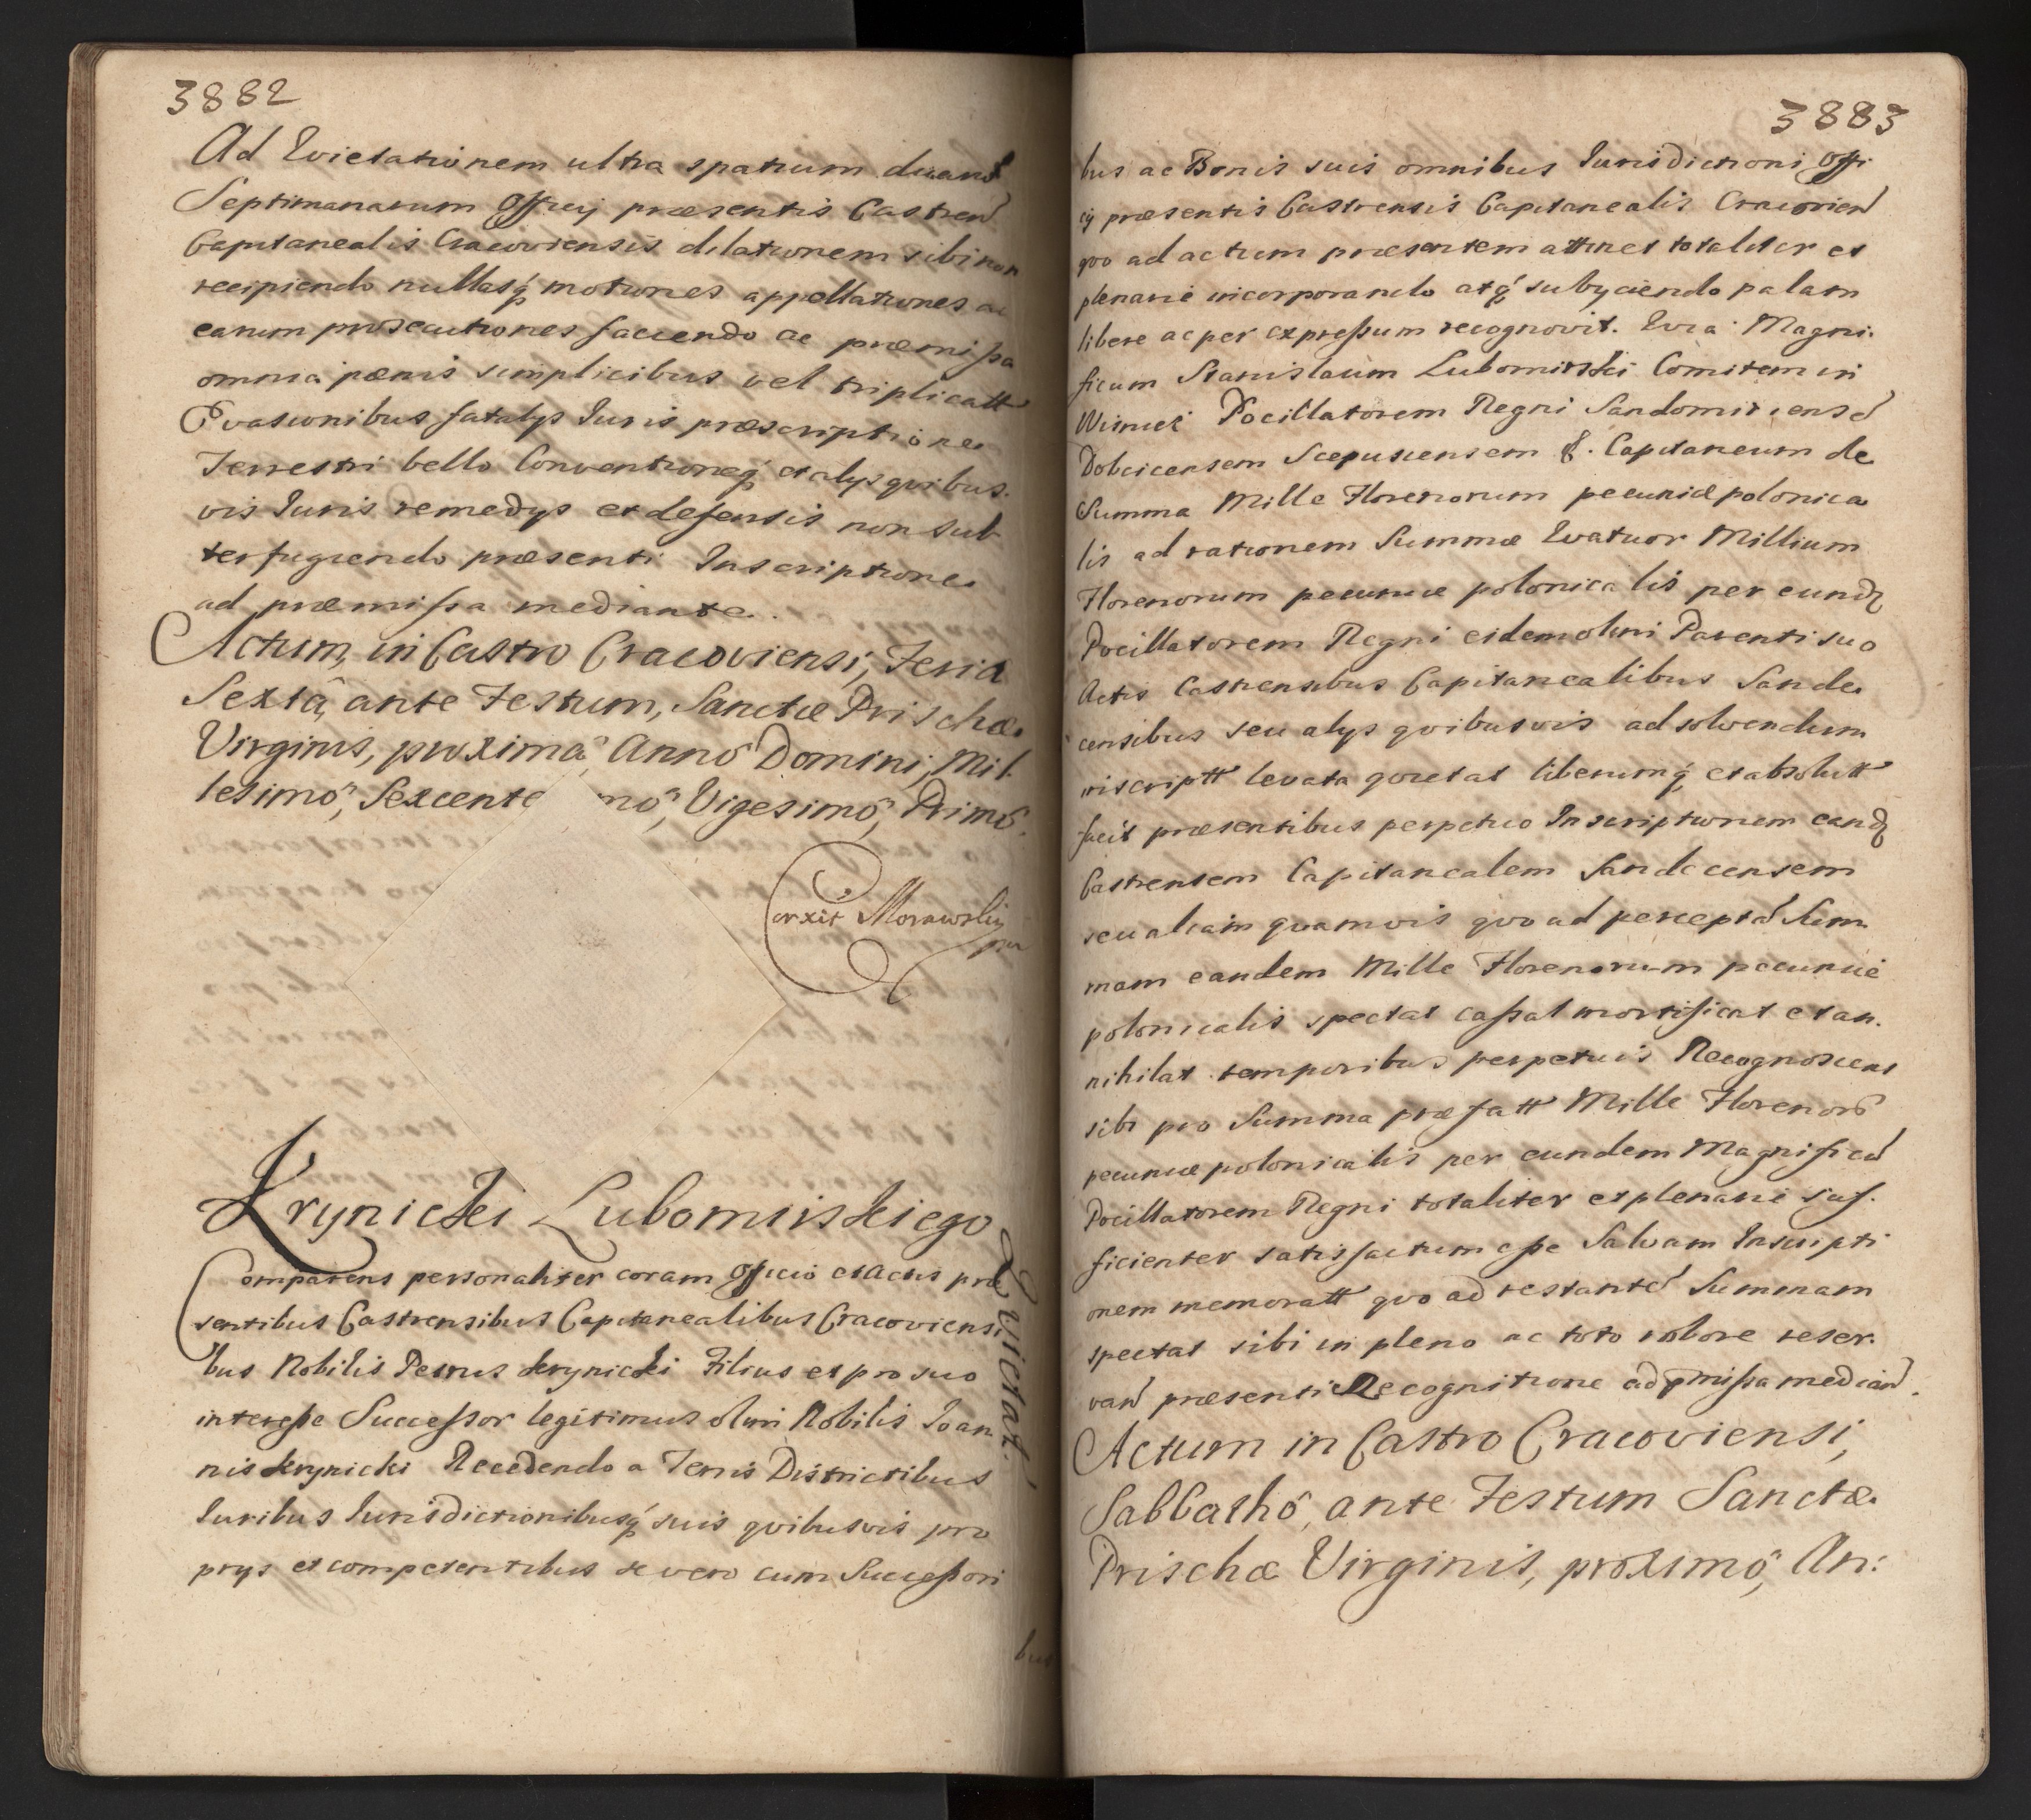 3882
Ad Evictationem ultra spatium duarũ
Septimanarum Officij præsentis Castreñ
Capitanealis Cracoviensis dilationem sibi non
recipiendo nullasq́ motiones appellationes ac
earum prosecutiones faciendo ac præmissa
omnia pænis simplicibus vel triplicatt
Evasionibus fatalijs Iuris præscriptione
Terrestri bello Conventioneq́ et alijs qvibus
vis Iuris remedijs et defensis non sub
terfugiendo præsenti Inscriptione
ad præmissa mediante.
Actum, in Castro Cracoviensi, Feria
Sexta, ante Festum, Sanctæ Prischæ
Virginis, proxima, Anno Domini, Mil
lesimo, Sexcente mo, Vigesimo, Primo.
Corxit Morawsky
mp
Krynicki Lubomirskiego
Qvietat.
Comparens personaliter coram Officio et Actis præ
sentibus Castrensibus Capitanealibus Cracoviensi
bus Nobilis Petrus Krynicki Filius et pro suo
interesse Successor legitimus olim Nobilis Ioan
nis Krynicki Recedendo a Terris Districtibus
Iuribus Iurisdictionibusq́ suis qvibusvis pro
prijs et competentibus se vero cum Successori
bus
3883
bus ac Bonis suis omnibus Iurisdictioni Offi
cij præsentis Castrensis Capitanealis Cracovień
qvo ad actum præsentem attinet totaliter et
plenarie incorporando atq́ subijciendo palam
libere ac per expressum recognovit. Qvia Magni
ficum Stanislaum Lubomirski Comitem in
Wisnicz Pocillatorem Regni Sandomiriensé
Dobcicensem Scepusiensem &. Capitaneum de
Summa Mille Florenorum pecuniæ polonica
lis ad rationem Summæ Qvatuor Millium
Florenorum pecuniæ polonicalis per eundꝫ
Pocillatorem Regni eidem olim Parenti suo
Actis Castrensibus Capitanealibus Sande
censibus seu alijs qvibusvis ad solvendum
inscriptt levata qvietat liberumq́ et absolutt
facit præsentibus perpetuo Inscriptionem eandꝫ
Castrensem Capitanealem Sandecensem
seu aliam qvamvis qvo ad perceptã Sum
mam eandem Mille Florenorum pecuniæ
polonicalis spectat cassat mortificat et an
nihilat temporibus perpetuis Recognoscens
sibi pro Summa præfatt Mille Florenorũ
pecuniæ polonicalis per eundem Magnificũ
Pocillatorem Regni totaliter et plenarie suf
ficienter satisfactum esse Salvam Inscripti
onem memoratt qvo ad restantẽ Summam
spectat sibi in pleno ac toto robore reser
vań præsenti Recognitione ad pmissa mediań.
Actum in Castro Cracoviensi,
Sabbatho, ante Festum Sanctæ
Prischæ Virginis, proximo, An: